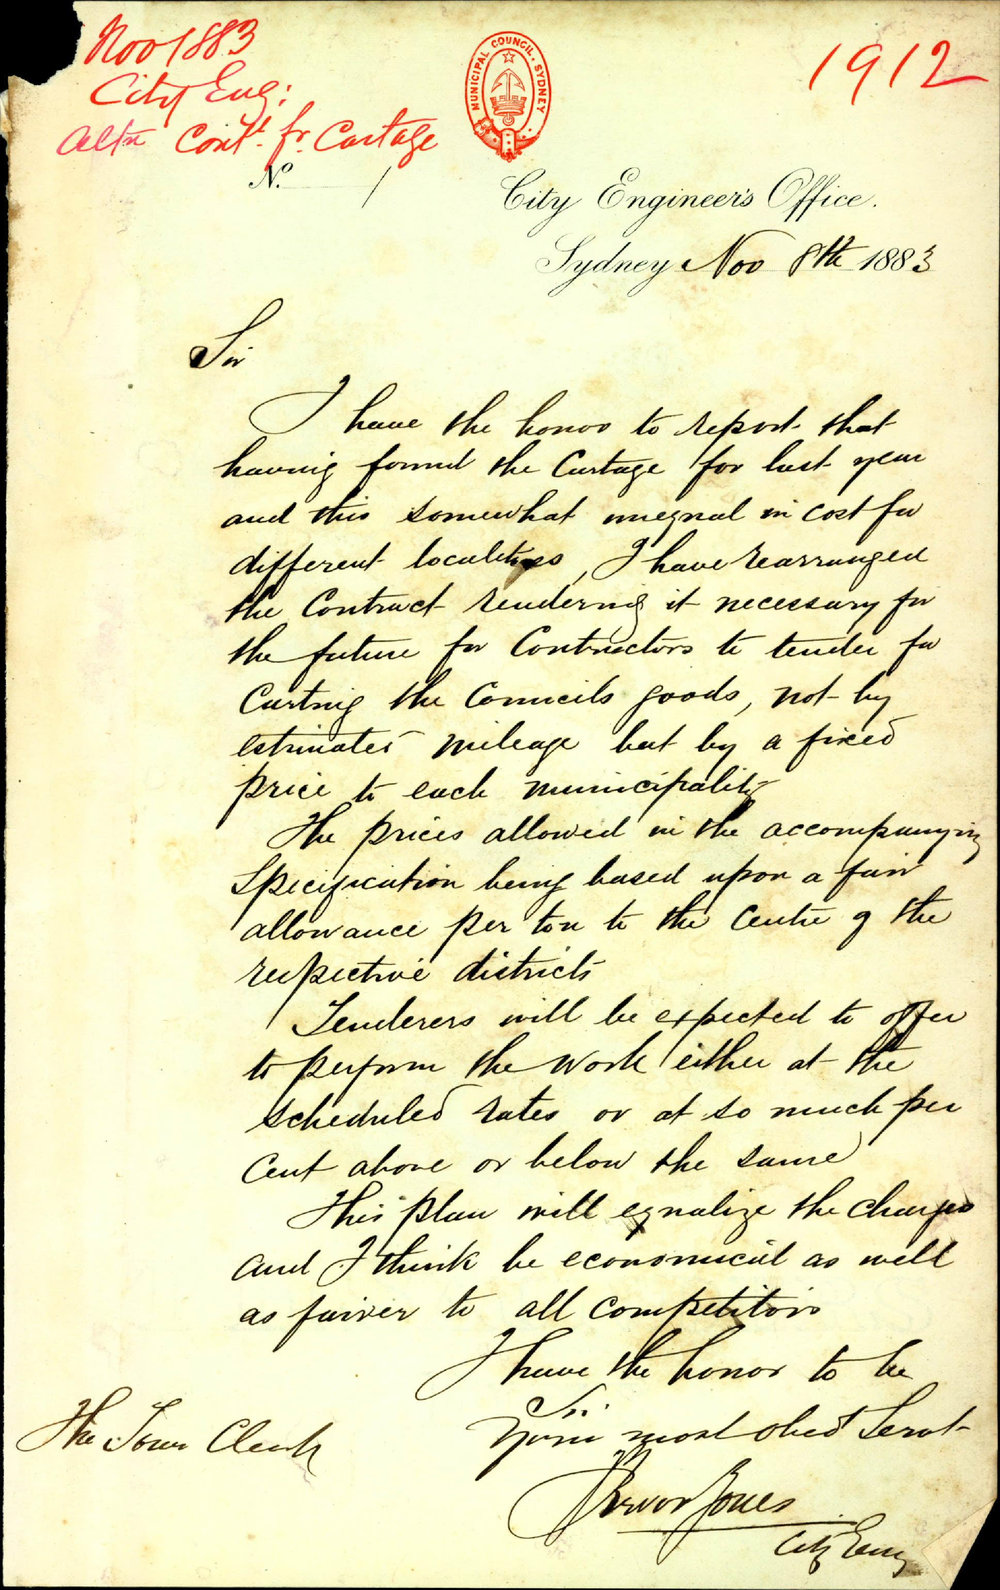 Nov 1883
City Eng:
Altn Cont. fr. Cartage
1912
MUNICIPAL COUNCIL. SYDNEY
No.
City Engineer's Office.
Sydney Nov 8th 1883
Sir
I have the honor to report that
having found the Cartage for last year
and this somewhat unequal in cost for
different localities, I have rearranged
the Contract rendering it necessary for
the future for Contractors to tender for
Carting the Councils goods, not by
estimated mileage but by a fixed
price to each municipality
The prices allowed in the accompanying
Specification being based upon a fair
allowance per ton to the Centre of the
respective districts
Tenderers will be expected to offer
to perform the work either at the
scheduled rates or at so much per
Cent above or below the same
This plan will equalize the charges
and I think be economical as well
as fairer to all competitors
I have the honor to be
Sir
Your most obed Servt
Trevor Jones
City Eng
The Town Clerk